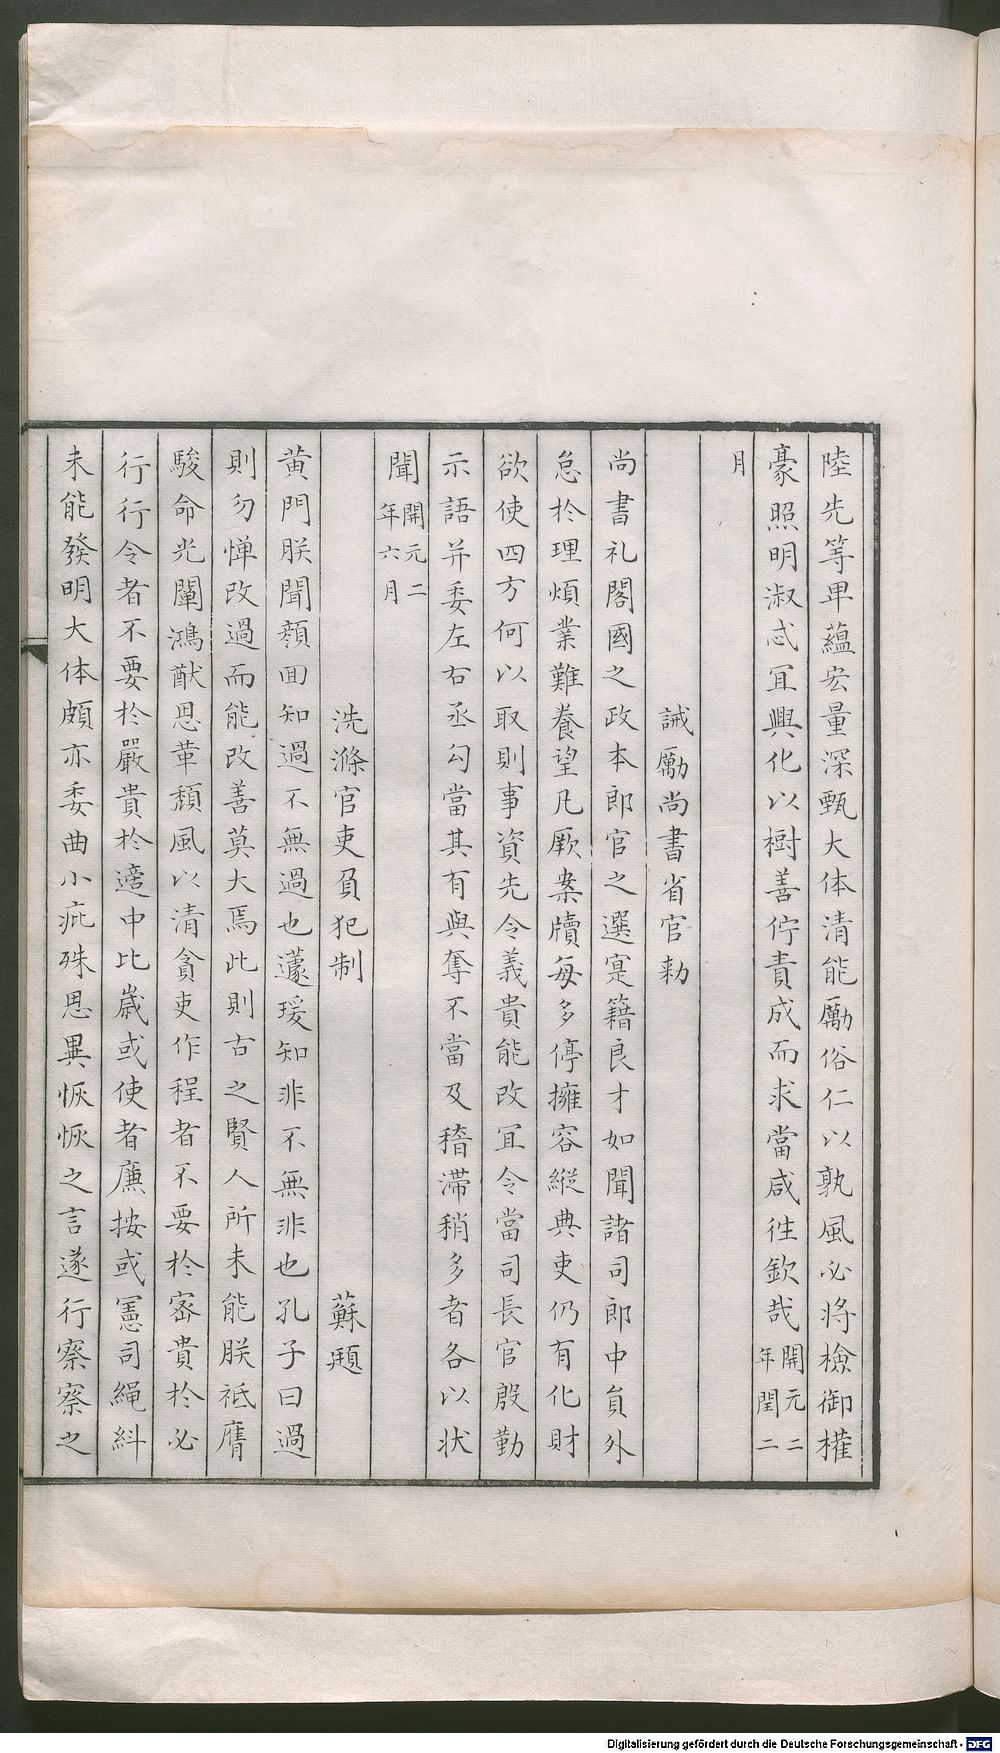 陸先等卑蘊宏量深甄大体清能勵俗仁以孰風必將檢御權
豪照明淑忒冝興化以樹善佇責成而求當咸徃欽哉開元二年閏二
月
誡勵尚書省官勑
尚書礼閣國之政本郎官之選寔籍良才如聞諸司郎中負外
怠於理煩業難養望凡厥案牘每多停擁容縱典吏仍有化財
欲使四方何以取則事資先令義貴能改冝令當司長官殷勤
示語并委左右丞勾當其有與奪不當及稽滯稍多者各以状
聞開元二年六月
洗滌官吏負犯制 蘇頲
黄門朕聞顔回知過不無過也蘧瑗知非不無非也孔子曰過
則勿憚改過而能改善莫大焉此則古之賢人所未能朕祗膺
駿命光闡鴻猷思革頽風以清貪吏作程者不要於宻貴於必
行行令者不要於嚴貴於適中比歳或使者廉按或憲司繩糾
未能發明大体頗亦委曲小疵殊思異恢恢之言遂行察察之
Digitalisierung gefördert durch die Deutsche Forschungsgemeinschaft - DFG